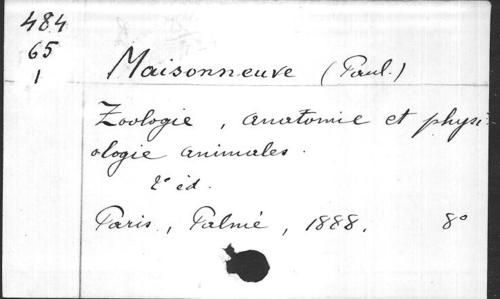 484
65
1
Maisonneuve (Paul.)
Zoologie, anatomie et physi-
ologie animales.
2e éd.
Paris, Palmé, 1888. 8°